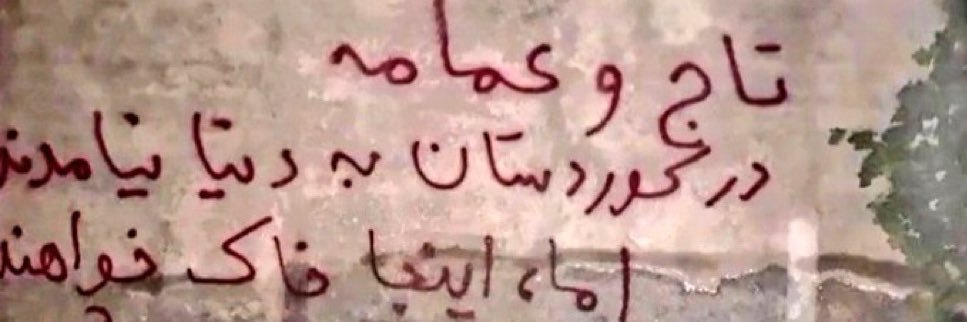 تاج و عمامه
در کوردستان به دنیا نیامدند
اما، اینجا خاک خواهند